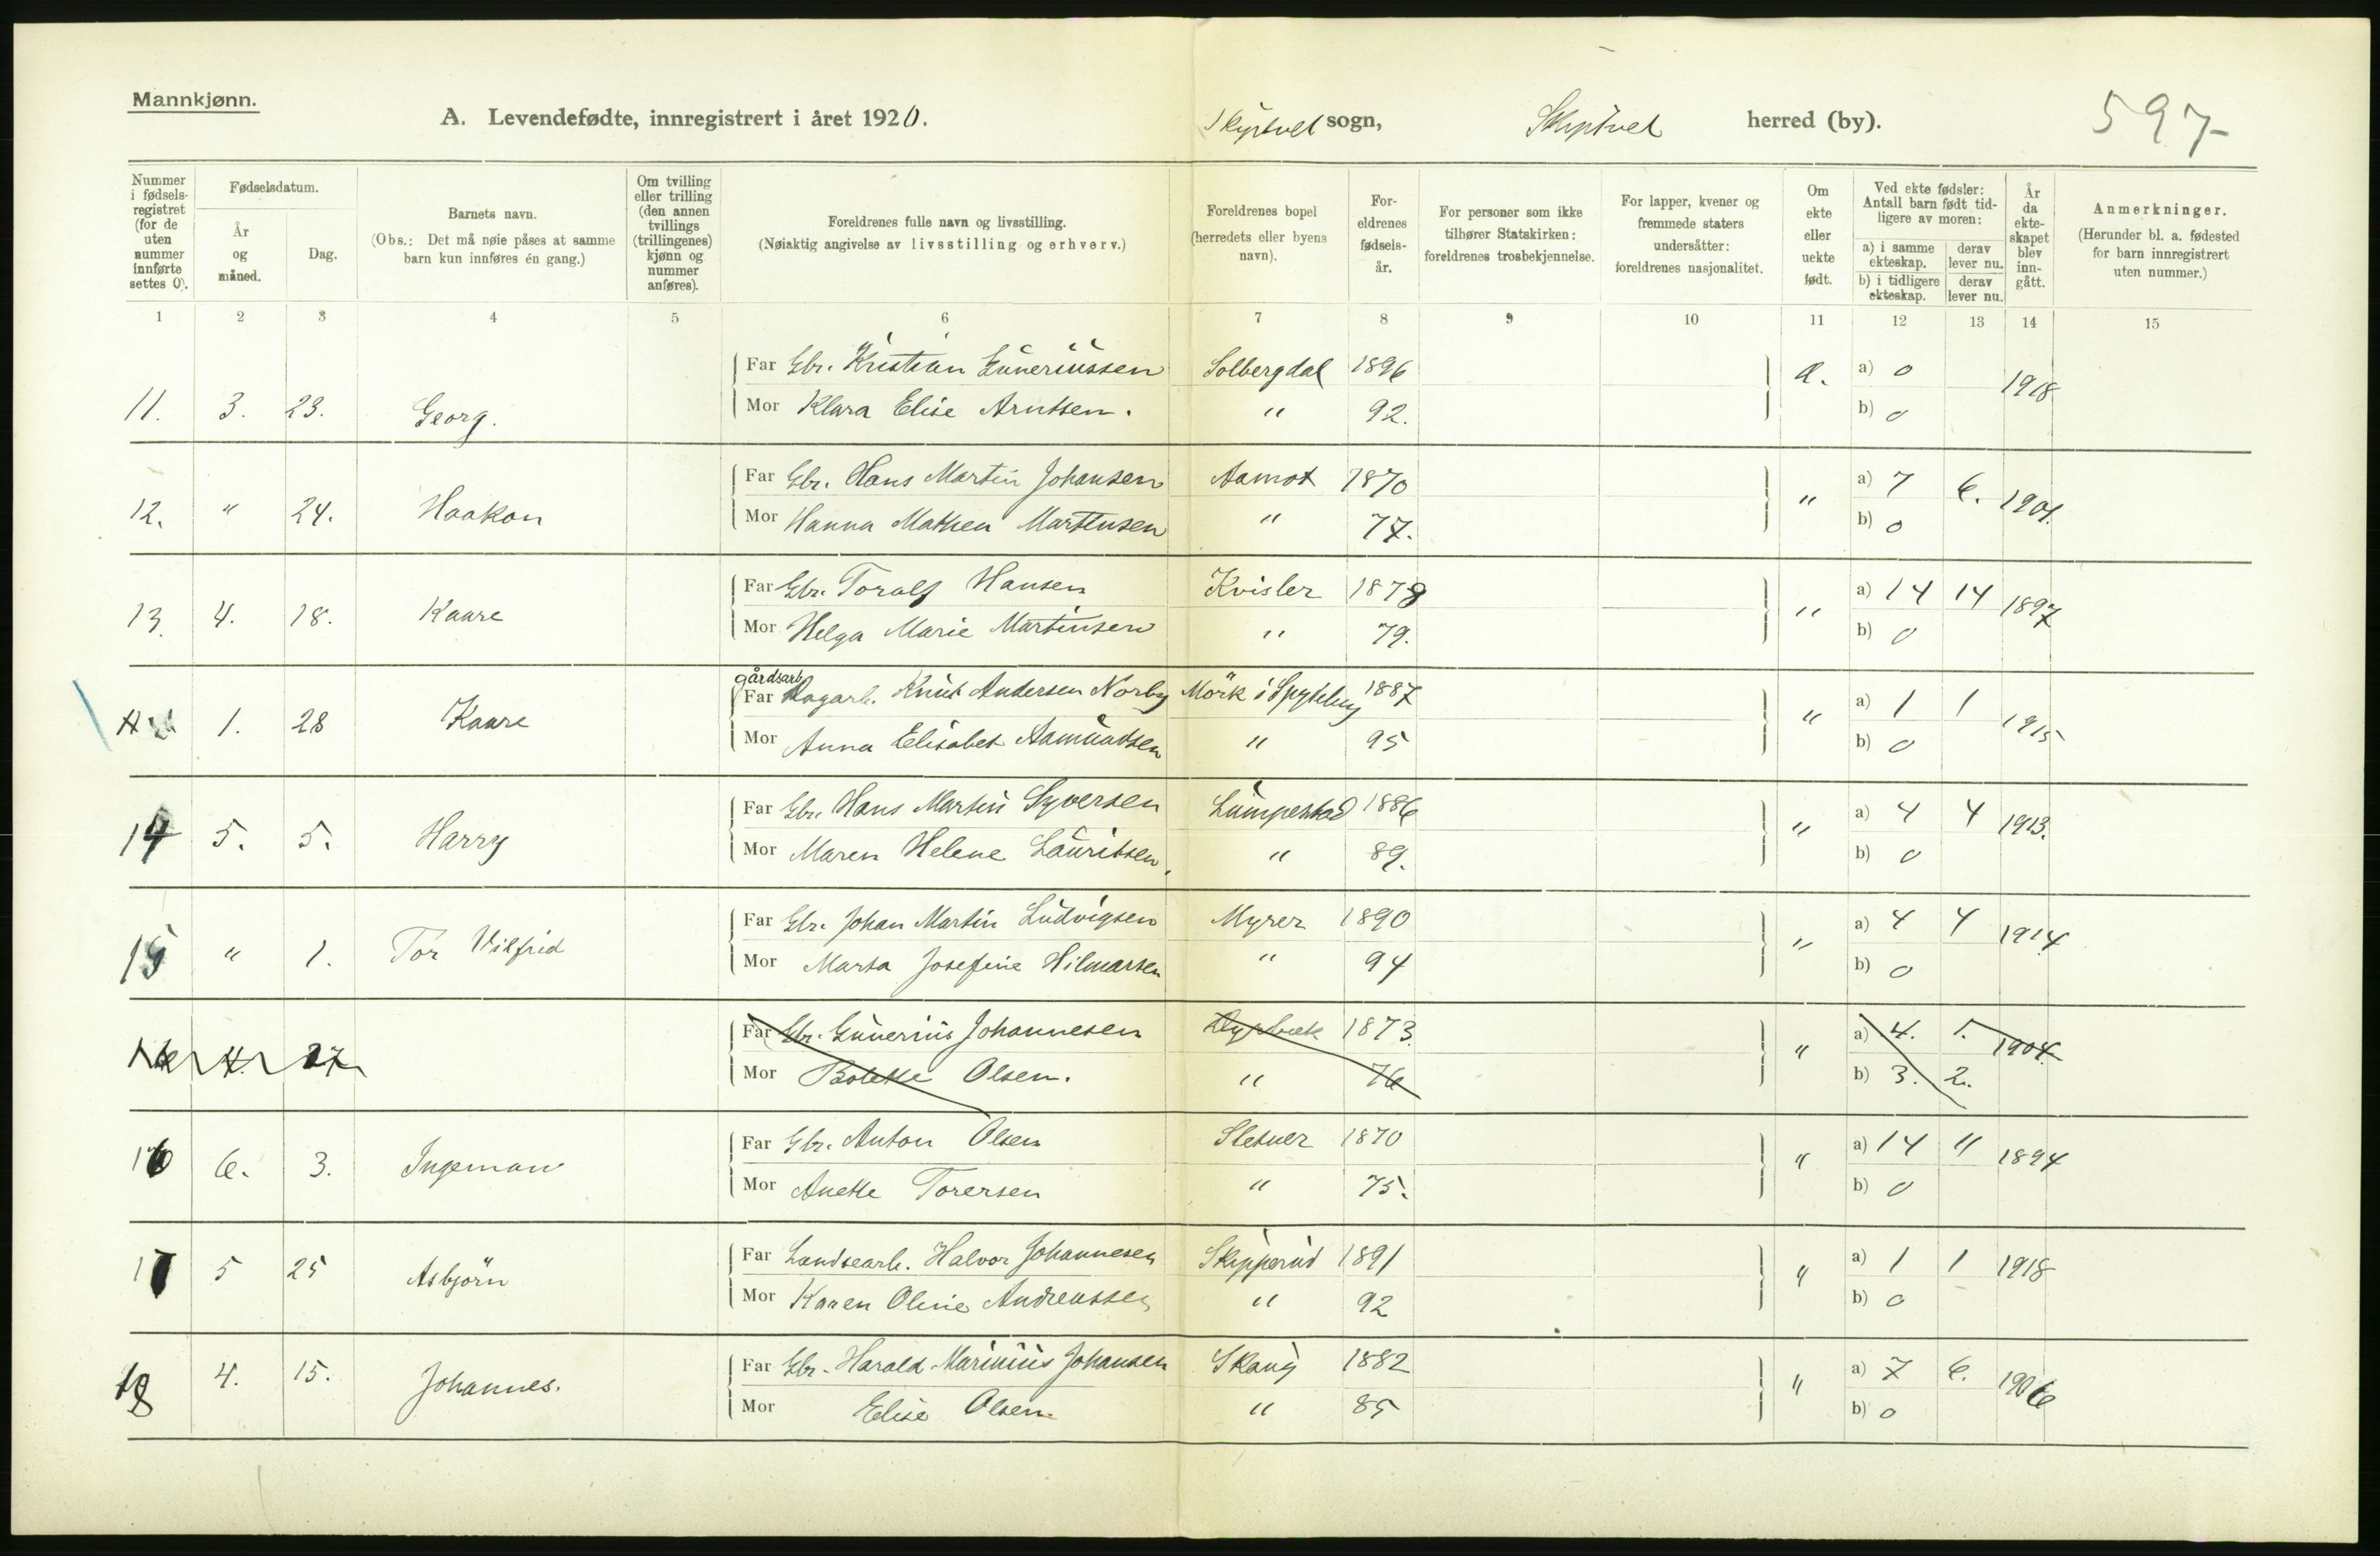 Mannkjønn.
A. Levendefødte, innregistrert i året 1920. Skiptvet sogn, Skiptvet herred (by). 597
Nummer i fødsels-registret (for de uten nummer innførte settes 0).
Fødselsdatum.
År og måned.
Dag.
Barnets navn.
(Obs.: Det må nøie påses at samme barn kun innføres én gang.)
Om tvilling eller trilling (den annen tvillings (trillingenes) kjønn og nummer anføres).
Foreldrenes fulle navn og livsstilling.
(Nøiaktig angivelse av livsstilling og erhverv.)
Foreldrenes bopel (herredets eller byens navn).
For-eldrenes fødsels-år.
For personer som ikke tilhører Statskirken: foreldrenes trosbekjennelse.
For lapper, kvener og fremmede staters undersåtter: foreldrenes nasjonalitet.
Om ekte eller uekte født.
Ved ekte fødsler: Antall barn født tid-ligere av moren:
a) i samme ekteskap.
derav lever nu.
b) i tidligere ekteskap.
derav lever nu.
År da ekte-skapet blev inn-gått.
Anmerkninger.
(Herunder bl. a. fødested for barn innregistrert uten nummer.)
1 2 3 4 5 6 7 8 9 10 11 12 13 14 15
Far Gbr. Kristian Guneriussen Solbergdal 1896 a) 0
11. 3. 23. Georg. Mor Klara Elise Arntsen. " 92. b) 0 1918
Far Gbr. Hans Martin Johansen Aamot 1870 a) 7 6.
12. " 24. Haakon Mor Hanna Mathea Martinsen " 77. " b) 0 1901.
Far Gbr. Toralf Hansen Kvisler 1878 a) 14 14
13. 4. 18. Kaare Mor Helga Marie Martinsen " 79. " b) 0 1897
gårdsarb.
Far Knut Andersen Norby Mörk i Spydeberg 1887 a) 1 1
1. 28 Kaare Mor Anna Elisabet Aamundsen " 95 " b) 0 1915
Far Gbr. Hans Martin Syversen Lumpestad 1886 a) 4 4
14 5. 5. Harry Mor Maren Helene Lauritsen. " 89. " b) 0 1913.
Far Gbr. Johan Martin Ludvigsen Myrer 1890 a) 4 4
15 " 1. Tor Vilfrid Mor Marta Josefine Hilmarsen " 94 " b) 0 1914
Far Gbr. Gunerius Johannesen 1873. a) 4. 1.
4. 27 Mor Bolette Olsen. " 76 " b) 3. 2. 1904.
Far Gbr. Anton Olsen Sletner 1870 a) 14 11
16 6. 3. Ingeman Mor Anette Torersen " 75. " b) 0 1894
Far Landsearb. Halvor Johannesen Skipperud 1891 a) 1 1
17 5 25 Asbjörn Mor Karen Oline Andreassen " 92 " b) 0 1918
Far Gbr. Harald Marinius Johansen Skaug 1882 a) 7 6.
18 4. 15. Johannes. Mor Elise Olsen. " 85 " b) 0 1906